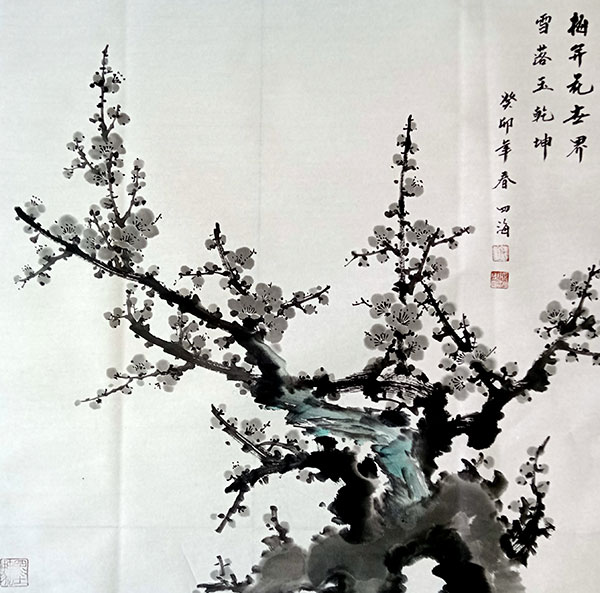 梅开花世界
雪落玉乾坤
癸卯年春 四海